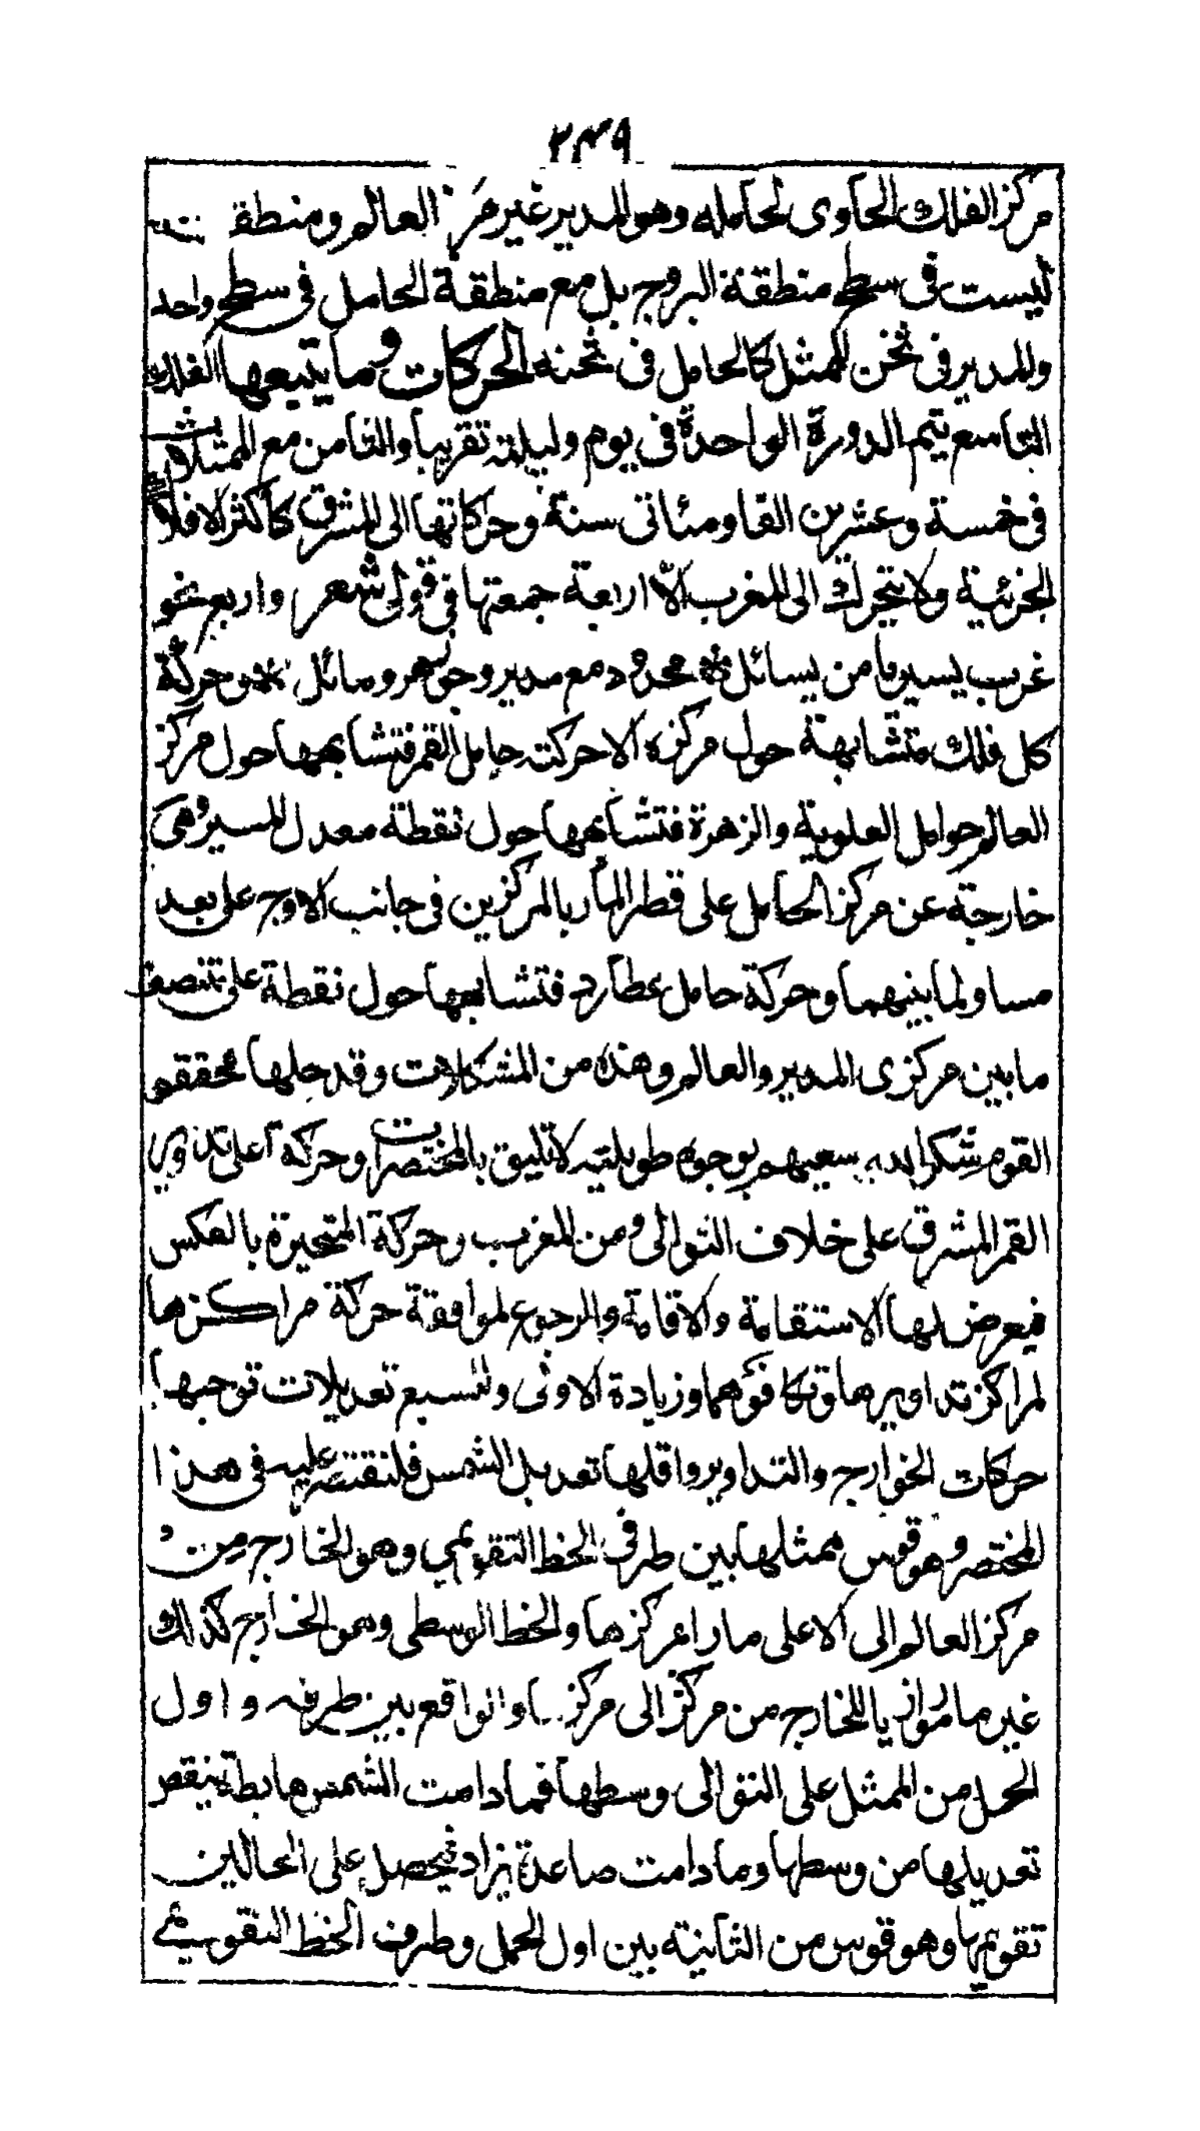 ٢٣٩
مركز الفلك الحاوى لحامله وهو المدير غير مركز العالم ومنطقته
ليست فى سطح منطقة البروج بل مع منطقة الحامل فى سطح واحد
والمدير فى ثخن الممثل كالحامل فى ثخنه الحركات وما يتبعها الفلك
التاسع يتم الدورة الواحدة فى يوم وليلته تقريبا والثامن مع الممثلات
فى خمسة وعشرين الفا ومئاتى سنة وحركاتها الى المشرق كأكثر الافلاك
الجزئية ولا يتحرك الى المغرب الّا اربعة جمعتها فى قولى شعر واربع نحو
غرب يسير يا من يسائل محدد مع مدير وجوزهر ومائل وحركة
كل فلك متشابهة حول مركزه الا حركته حامل القمر فتشابهها حول مركز
العالم حوامل العلوية والزهرة فتشابهها حول نقطة معدل المسير وهى
خارجة عن مركز الحامل على قطر المار بالمركزين فى جانب الاوج على بعد
مساو لما بينهما وحركة حامل عطارد فتشابهها حول نقطة على تنصف
ما بين مركزى المدير والعالم وهذه من المشكلات وقد حلها محققو
القوم شكر الله سعيهم بوجوه طويلته لا تليق بالمختصرات وحركة اعلى تدوير
القمر المشرق على خلاف التوالى ومن المغرب وحركة المتحيرة بالعكس
فيعرض لها الاستقامة والاقامة والرجوع لموافقة حركة مراكزها
لمراكز تداويرها وتكافؤهما وزيادة الاوفى وللسبع تعديلات توجبها
حركات الخوارج والتداوير واقلها تعديل الشمس فلنقتصر عليه فى هذا
المختصر وهو قوس ممثلها بين طرفى الخط التقويمى وهو الخارج من
مركز العالم الى الاعلى مارا بمركزها والخط الوسطى وهو الخارج كذلك
غير ما لموازيا للخارج من مركز الى مركزها والواقع بين طرفه واول
الحمل من الممثل على التوالى وسطها فما دامت الشمس هابطة ينقص
تعديلها من وسطها وما دامت صاعدة يزاد فيحصل على الحالين
تقويمها وهو قوس من الثانية بين اول الحمل وطرف الخط التقويمى